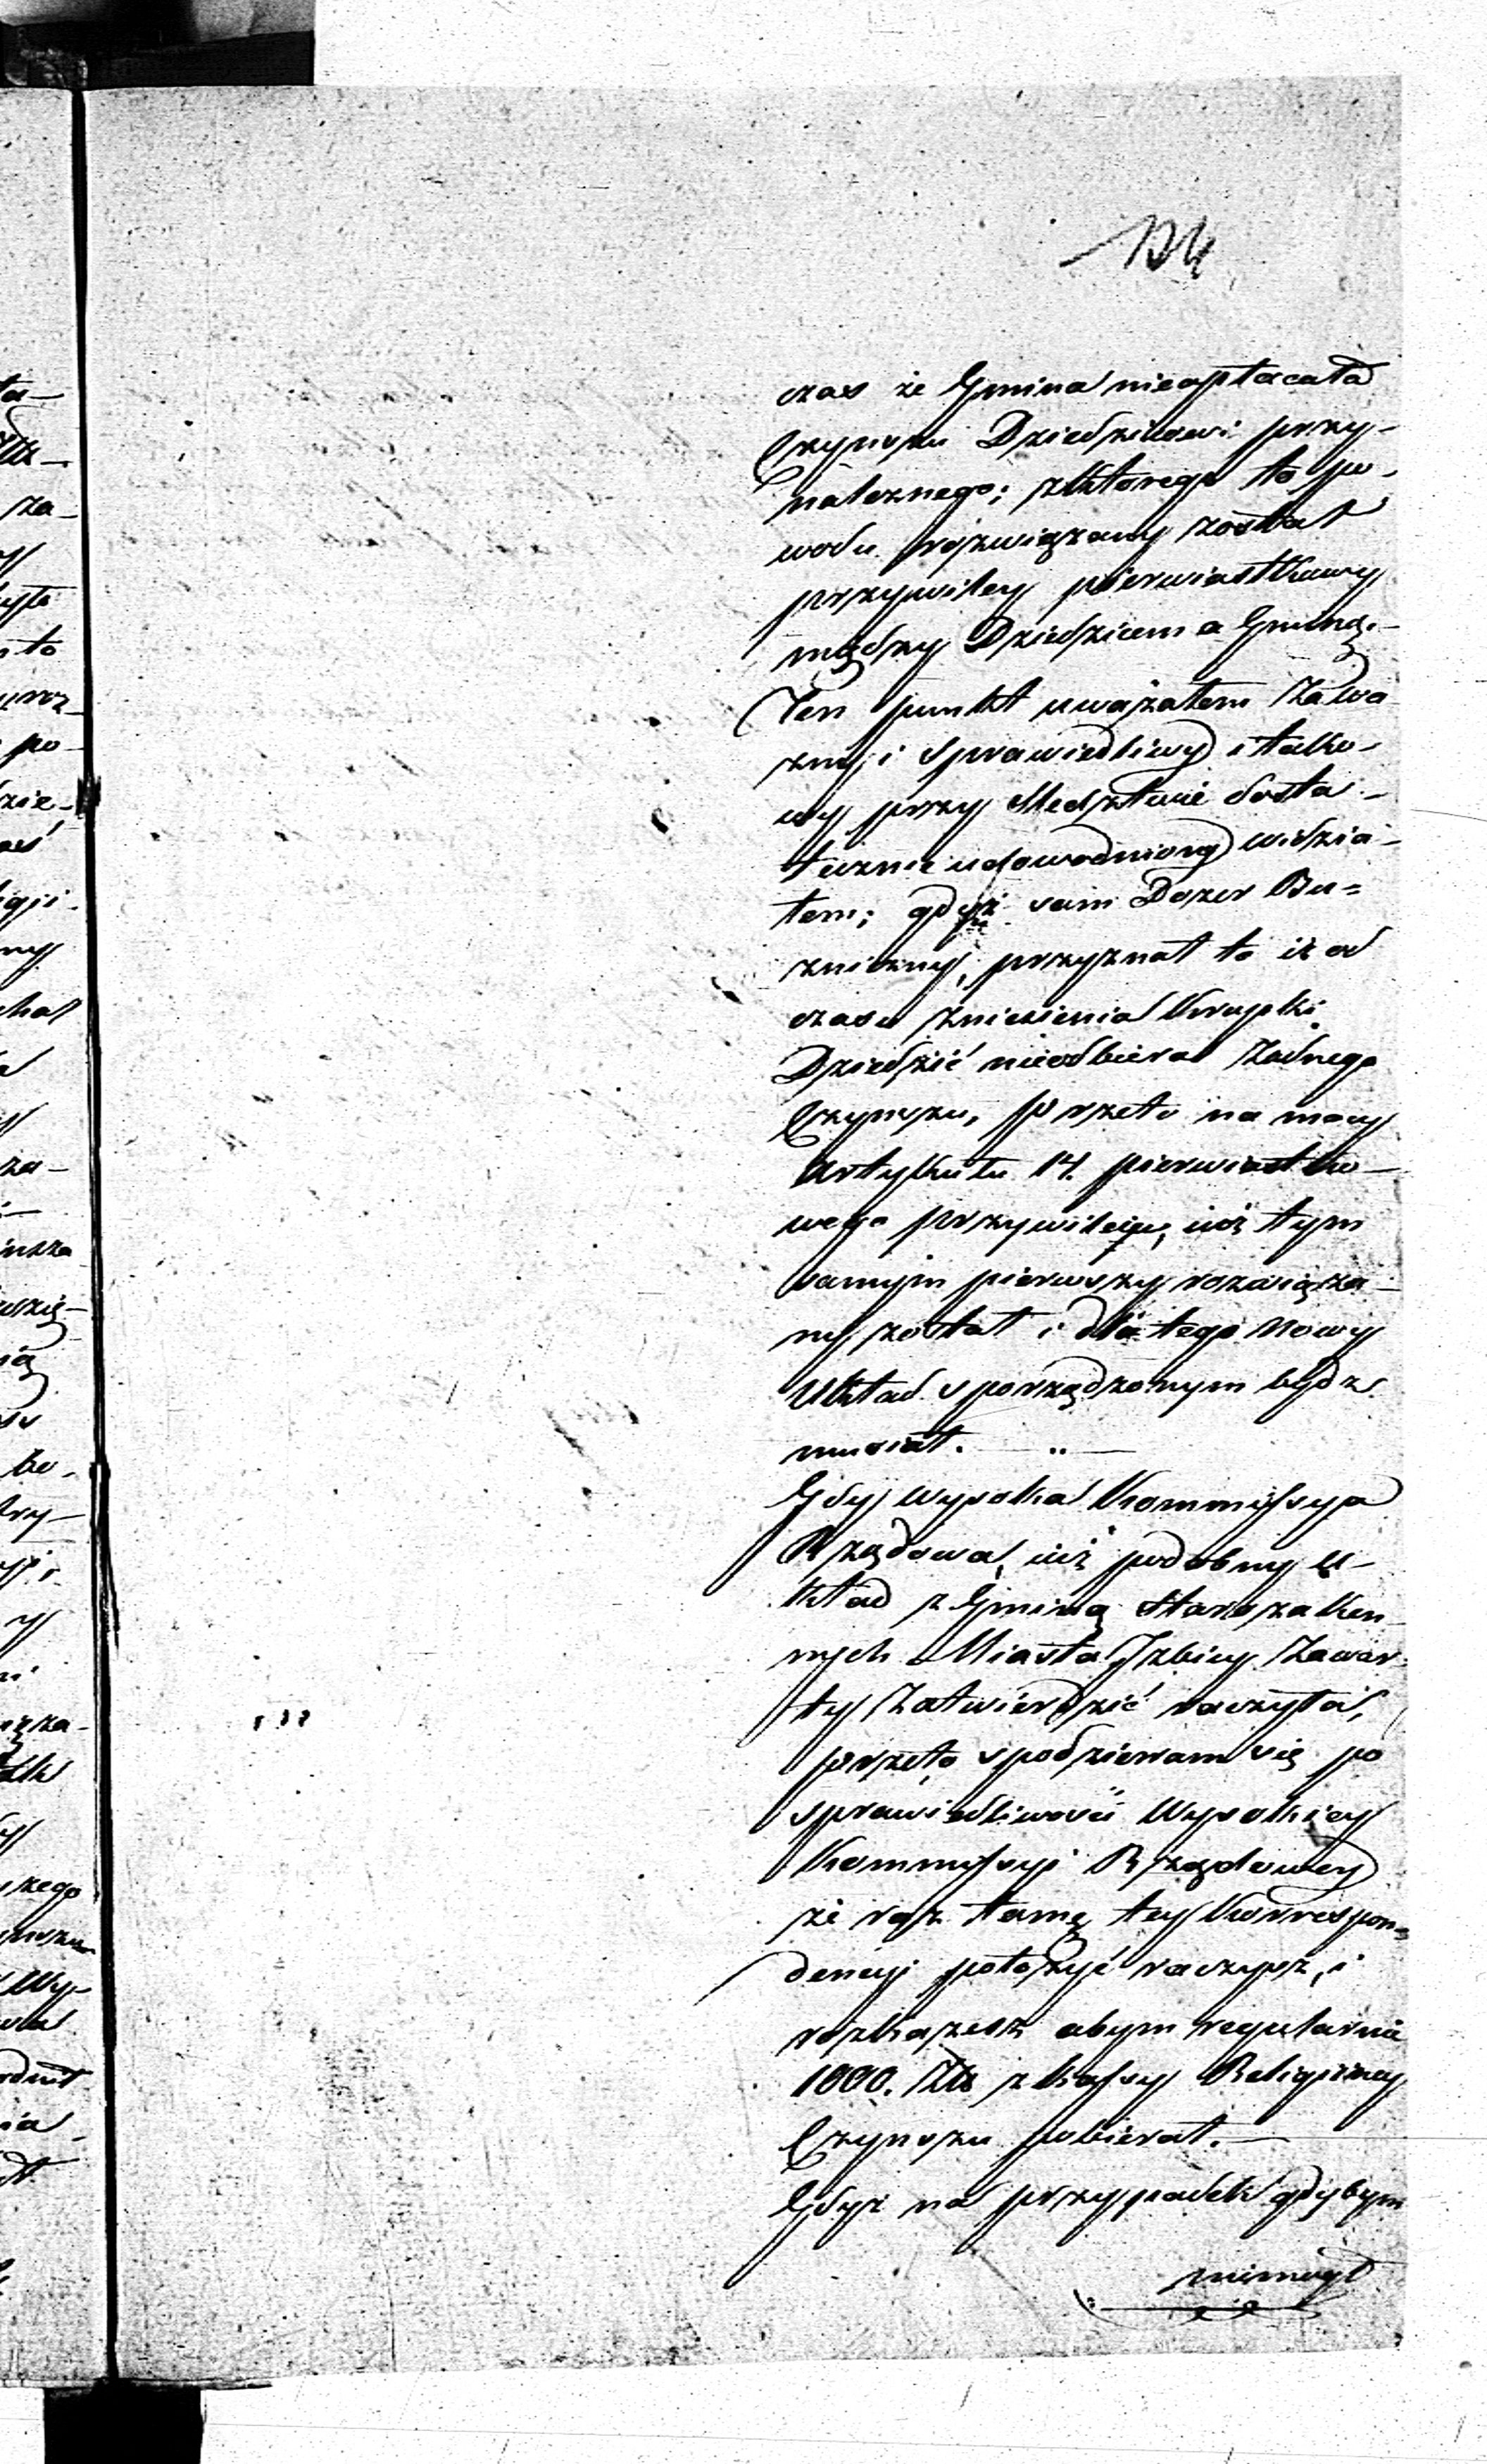 134
czas że Gmina nieopłacała
Czynszu Dziedzicowi przy-
należnego; zktórego to po-
wodu rozwiązany został
przywiley pierwiastkowy
między Dziedzicem a Gminą.-
Ten punkt uważałem Za wa
żny i Sprawiedliwy i tako-
wy przy śledztwie dosta-
tecznie udowodniony widzia-
łem; gdyż sam Dozor Bu=
żniczny, przyznał to iż od
czasu zniesienia Krupki
Dziedzić nieodbiera Żadnego
Czynszu, przeto na mocy
Artykułu 14. pierwiastko-
wego przywileju, iuż tym
samym pierwszy rozwiąza-
ny został i dla tego Nowy
Układ sporządzonym bydz
musiał.
Gdy Wysoka Kommissya
Rządowa, iuż podobny u-
kład z Gminą Starozakon
nych Miasta Izbicy Zawar-
ty Zatwierdzić raczyła,
przeto spodziewam się po
sprawiedliwości Wysokiey
Kommissyi Rządowey
że raz tamę tey Korrespon=
dencyi położyć raczysz, i
rozkażesz abym regularnie
1000. Złt z kassy Religiiney
Czynszu pobierał.-
Gdyż na przypadek gdybym
niemógł
ta-
za-
to
po-
zie-
ny
chał
za-
ry-
zego
Wy-